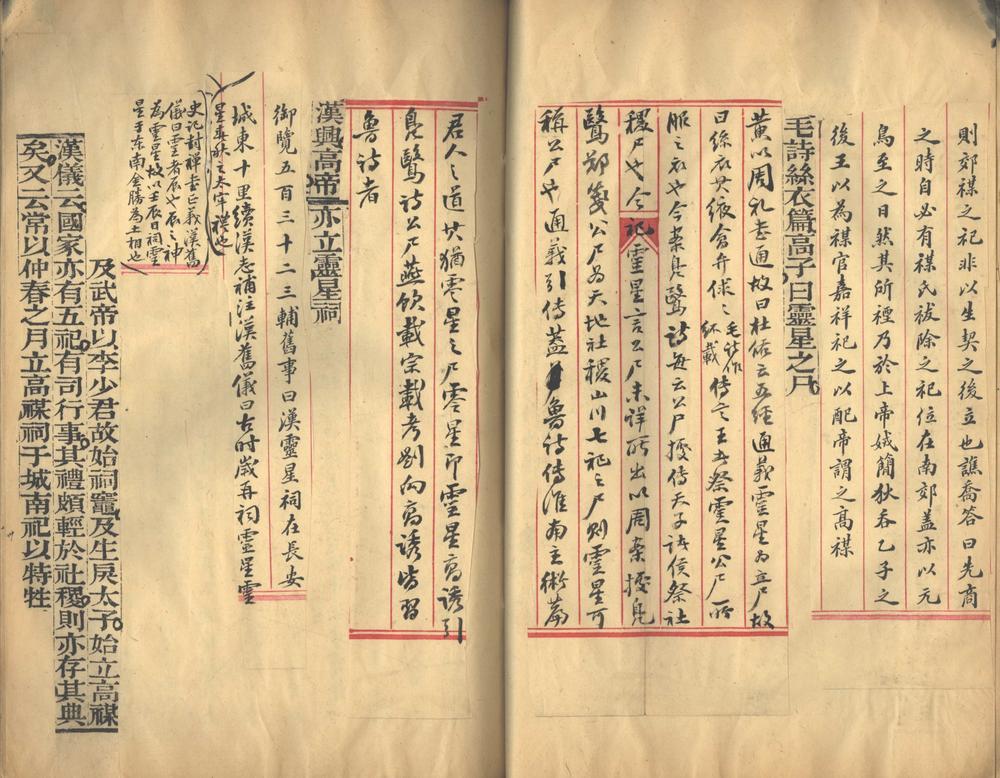 則郊禖之祀非以生契之後立也譙喬答曰先商
之時自必有禖氏祓除之祀位在南郊蓋亦以元
鳥至之日然其所禋乃於上帝娀簡狄吞乙子之
後王以為禖官嘉祥祀之以配帝謂之高禖
毛詩絲衣篇高子曰靈星之尸
黄以周礼書通故曰杜佑云五經通義靈星為立尸故
曰絲衣其紑會弁俅俅
毛詩作
紑載
傳言王者祭靈星公尸所
服之衣也今案鳧鷖詩每云公尸據傳天子諸侯祭社
稷尸也今祀靈星言公尸未詳所出以周案據鳧
鷖鄭箋公尸為天地社稷山川七祀之尸則靈星可
稱公尸也通義引傳蓋魯詩傳淮南主術篇
君人之道其猶零星之尸零星即靈星高誘引
鳧鷖詩公尸燕飲載宗載考劉向高誘皆習
魯詩者
漢興高帝亦立靈星祠
御覽五百三十二三輔舊事曰漢靈星祠在長安
城東十里續漢志補注漢舊儀曰古时歲再祠靈星靈
星春秋之太牢禮也
史记封禅書正義漢舊
儀曰靈者辰也辰之神
為靈星故以壬辰日祠靈
星于东南金勝為土相也
及武帝以李少君故始祠竈及生戾太子始立高禖
漢儀云國家亦有五祀有司行事其禮頗輕於社稷則亦存其典
矣又云常以仲春之月立高禖祠于城南祀以特牲